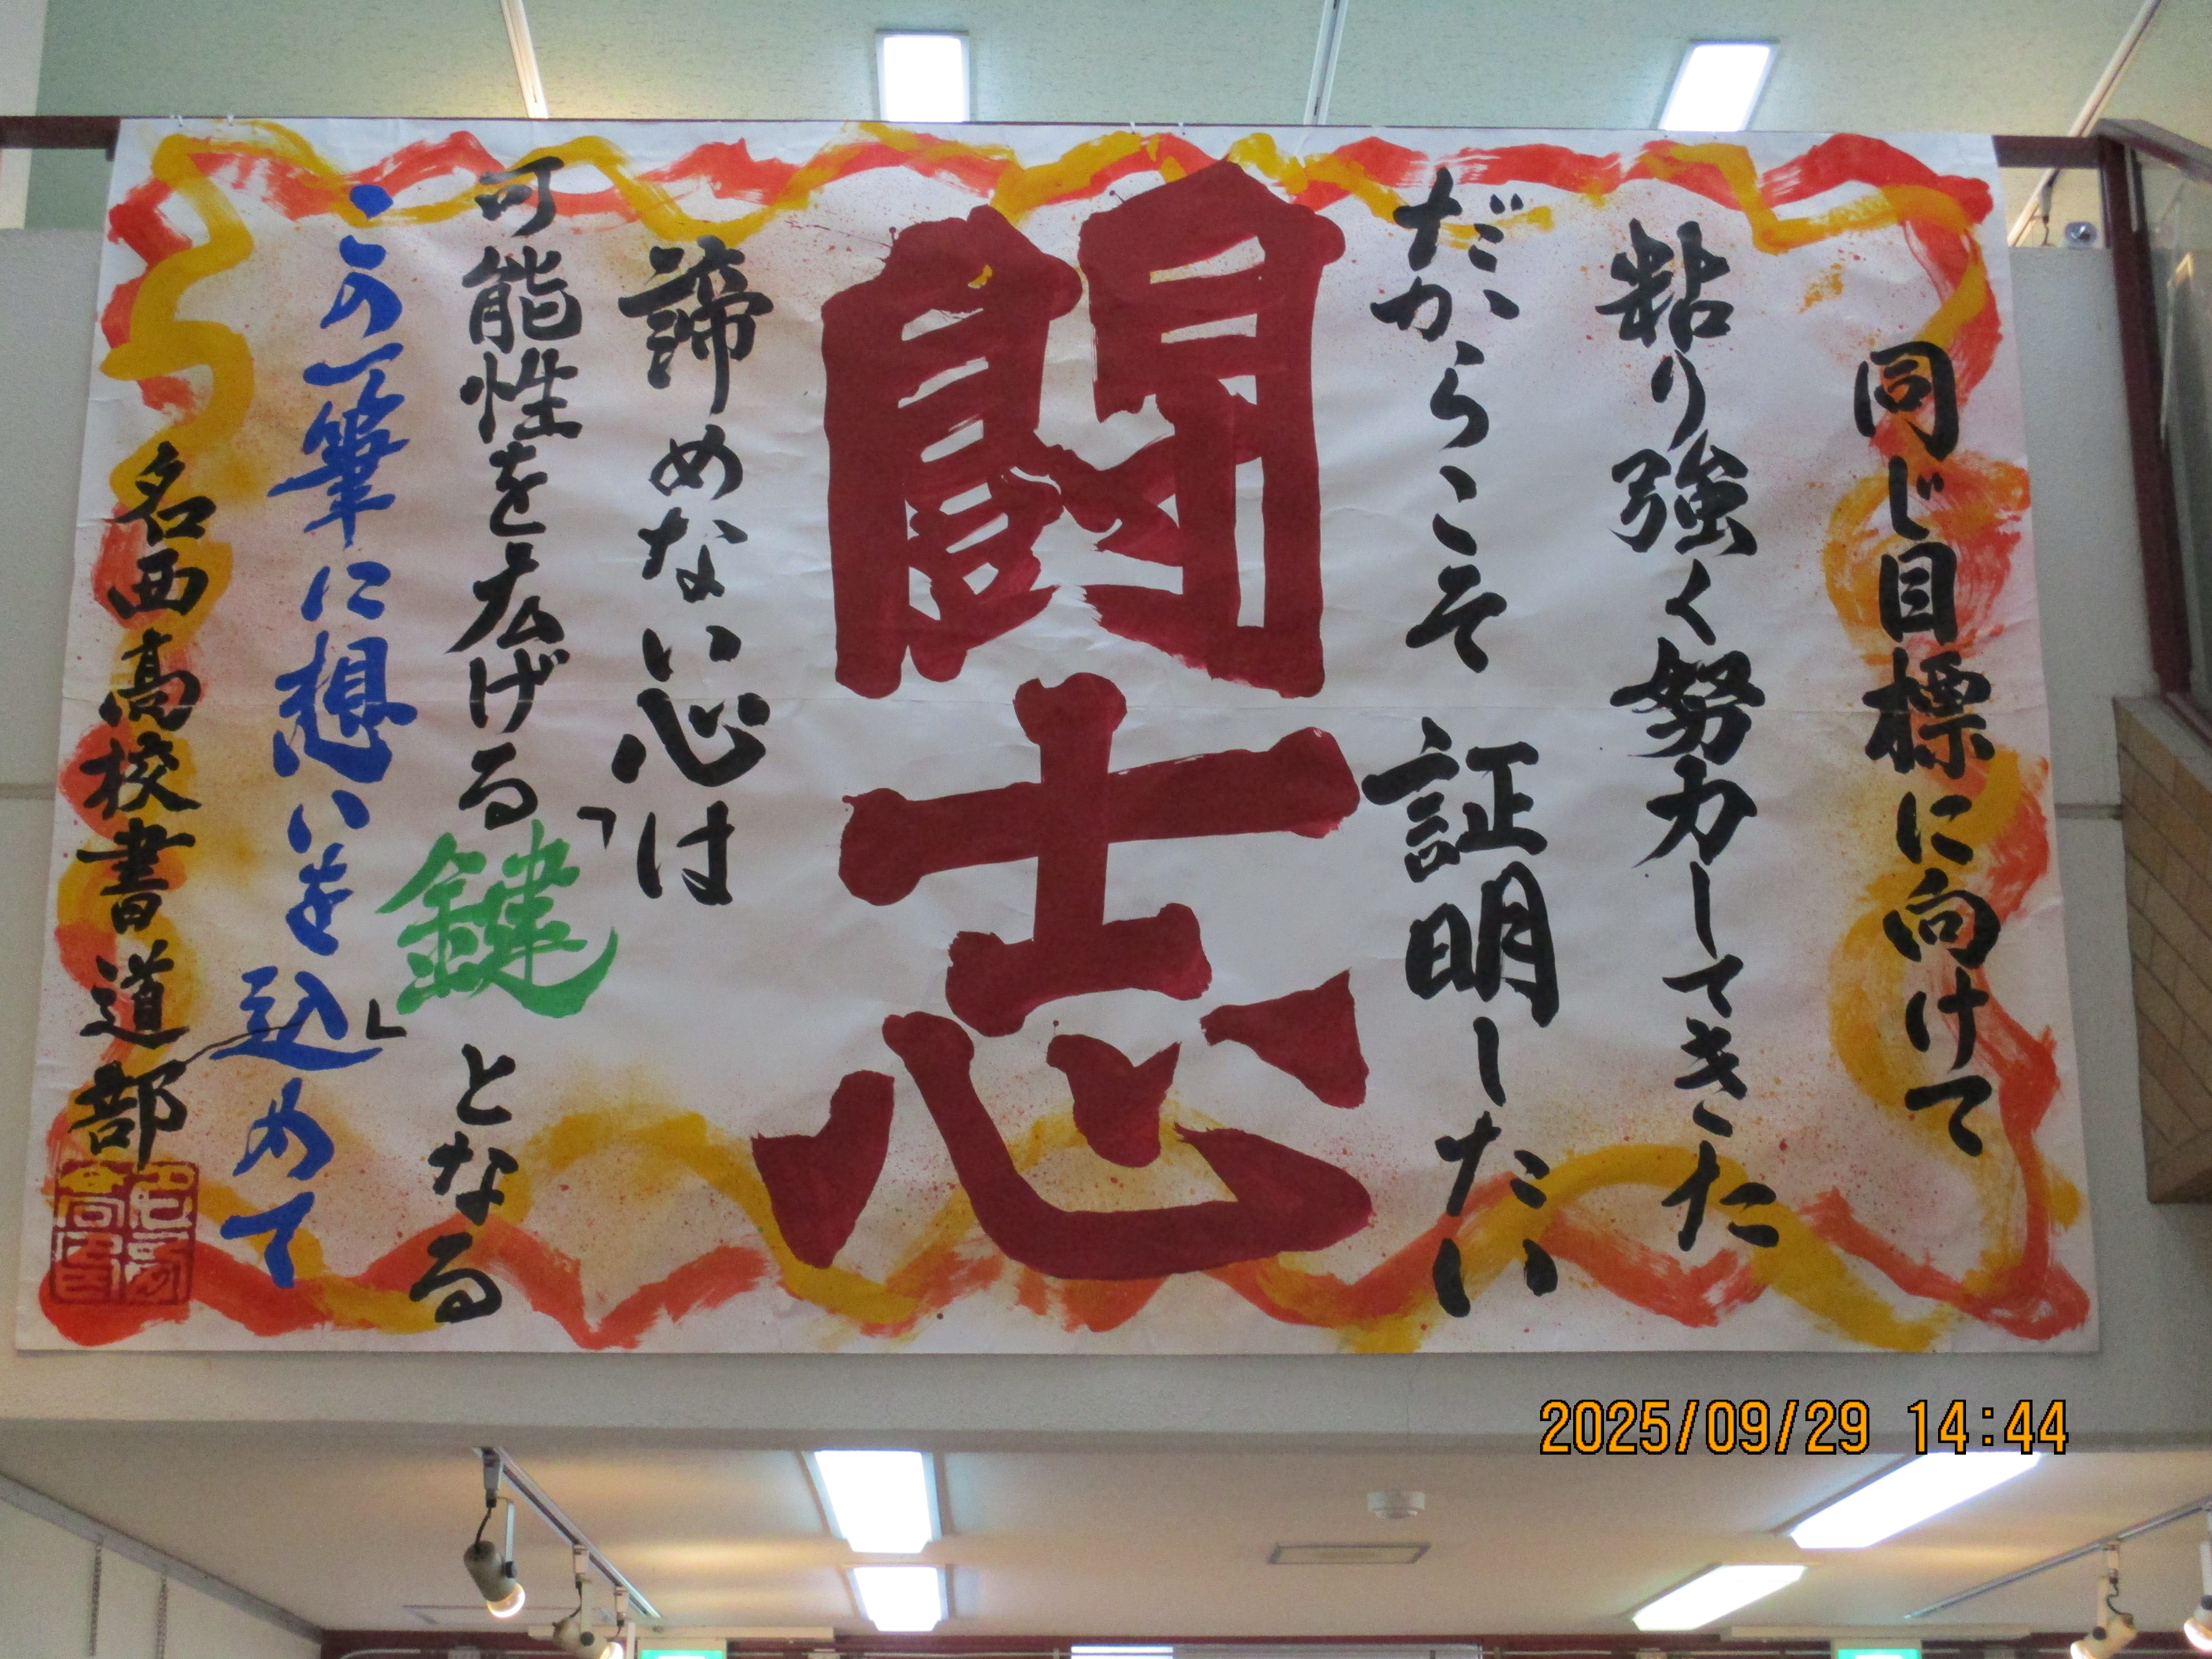 同じ目標に向けて
粘り強く努力してきた
だからこそ 証明したい
闘志
諦めない心は
可能性を広げる「鍵」となる
この一筆に想いを込めて
名西高校書道部
2025/09/29 14:44